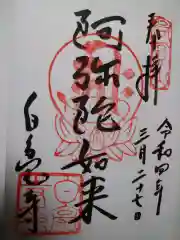 奉拝
令和四年
三月二十七日
阿弥陀如来